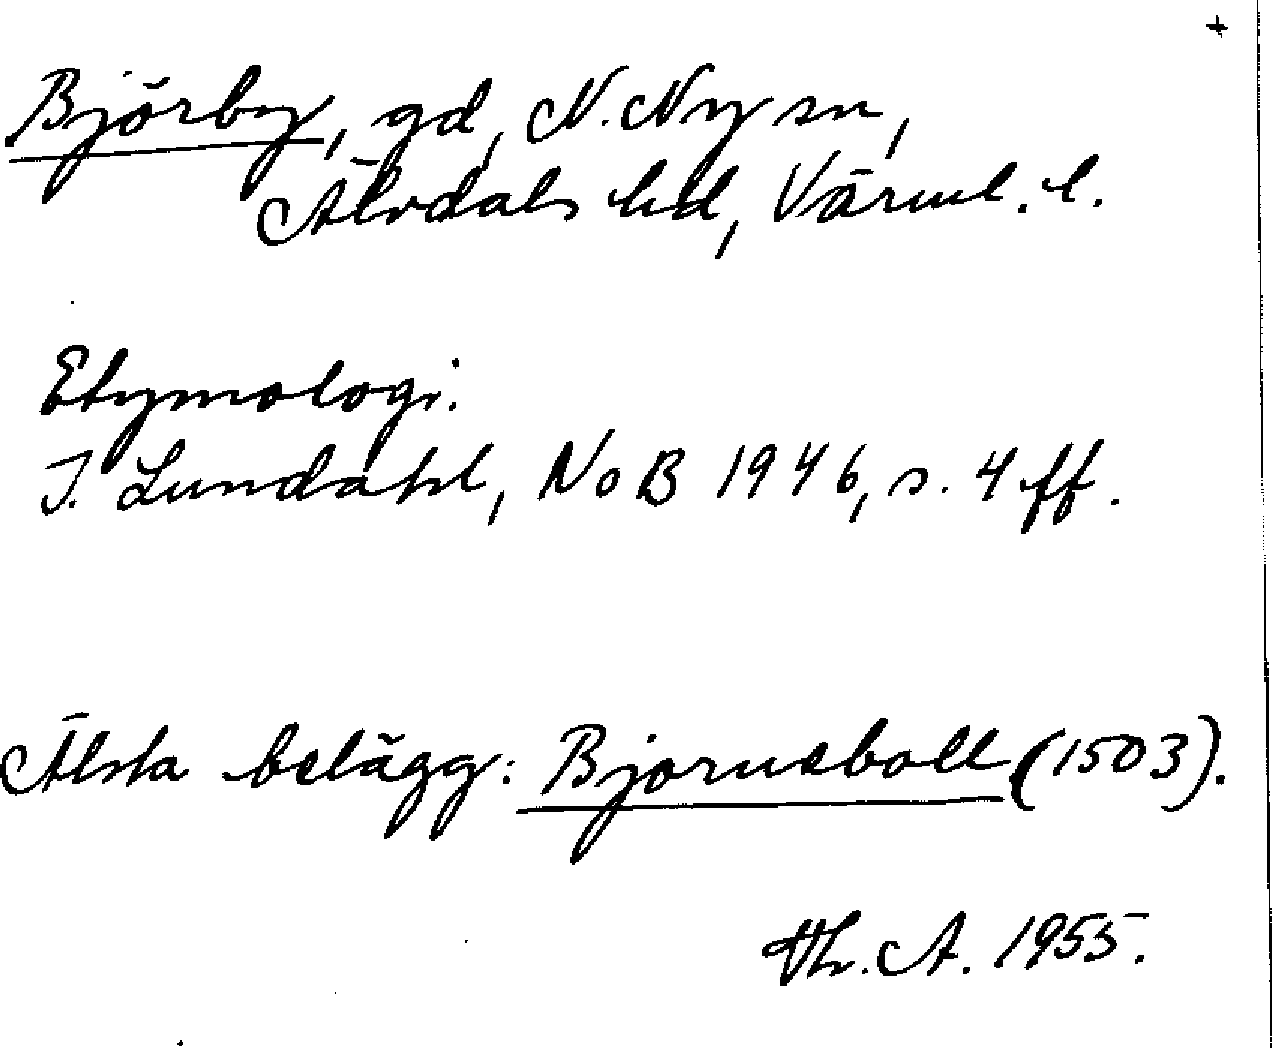 +
Björby, gd, N. Ny sn,
Älvdals hd, Värml. l.
Etymologi.
I. Lundahl, NoB 1946, s. 4 ff.
Älsta belägg: Bjorneboll (1503).
Th. A. 1955.